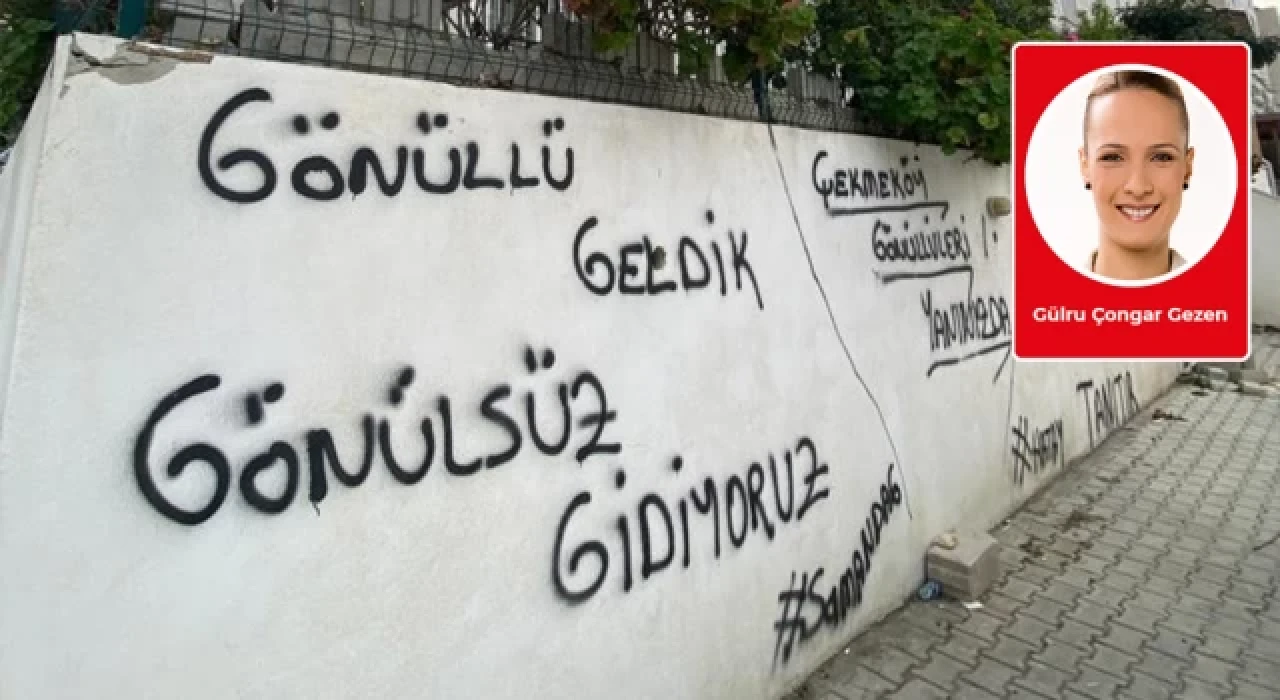 GÖNÜLLÜ
GELDİK
GÖNÜLSÜZ
GİDİYORUZ
#SAMANDAĞ
ÇEKMEKÖY
GÖNÜLLÜLERİ
YANINIZDA
#HATAY
Gülru Çongar Gezen